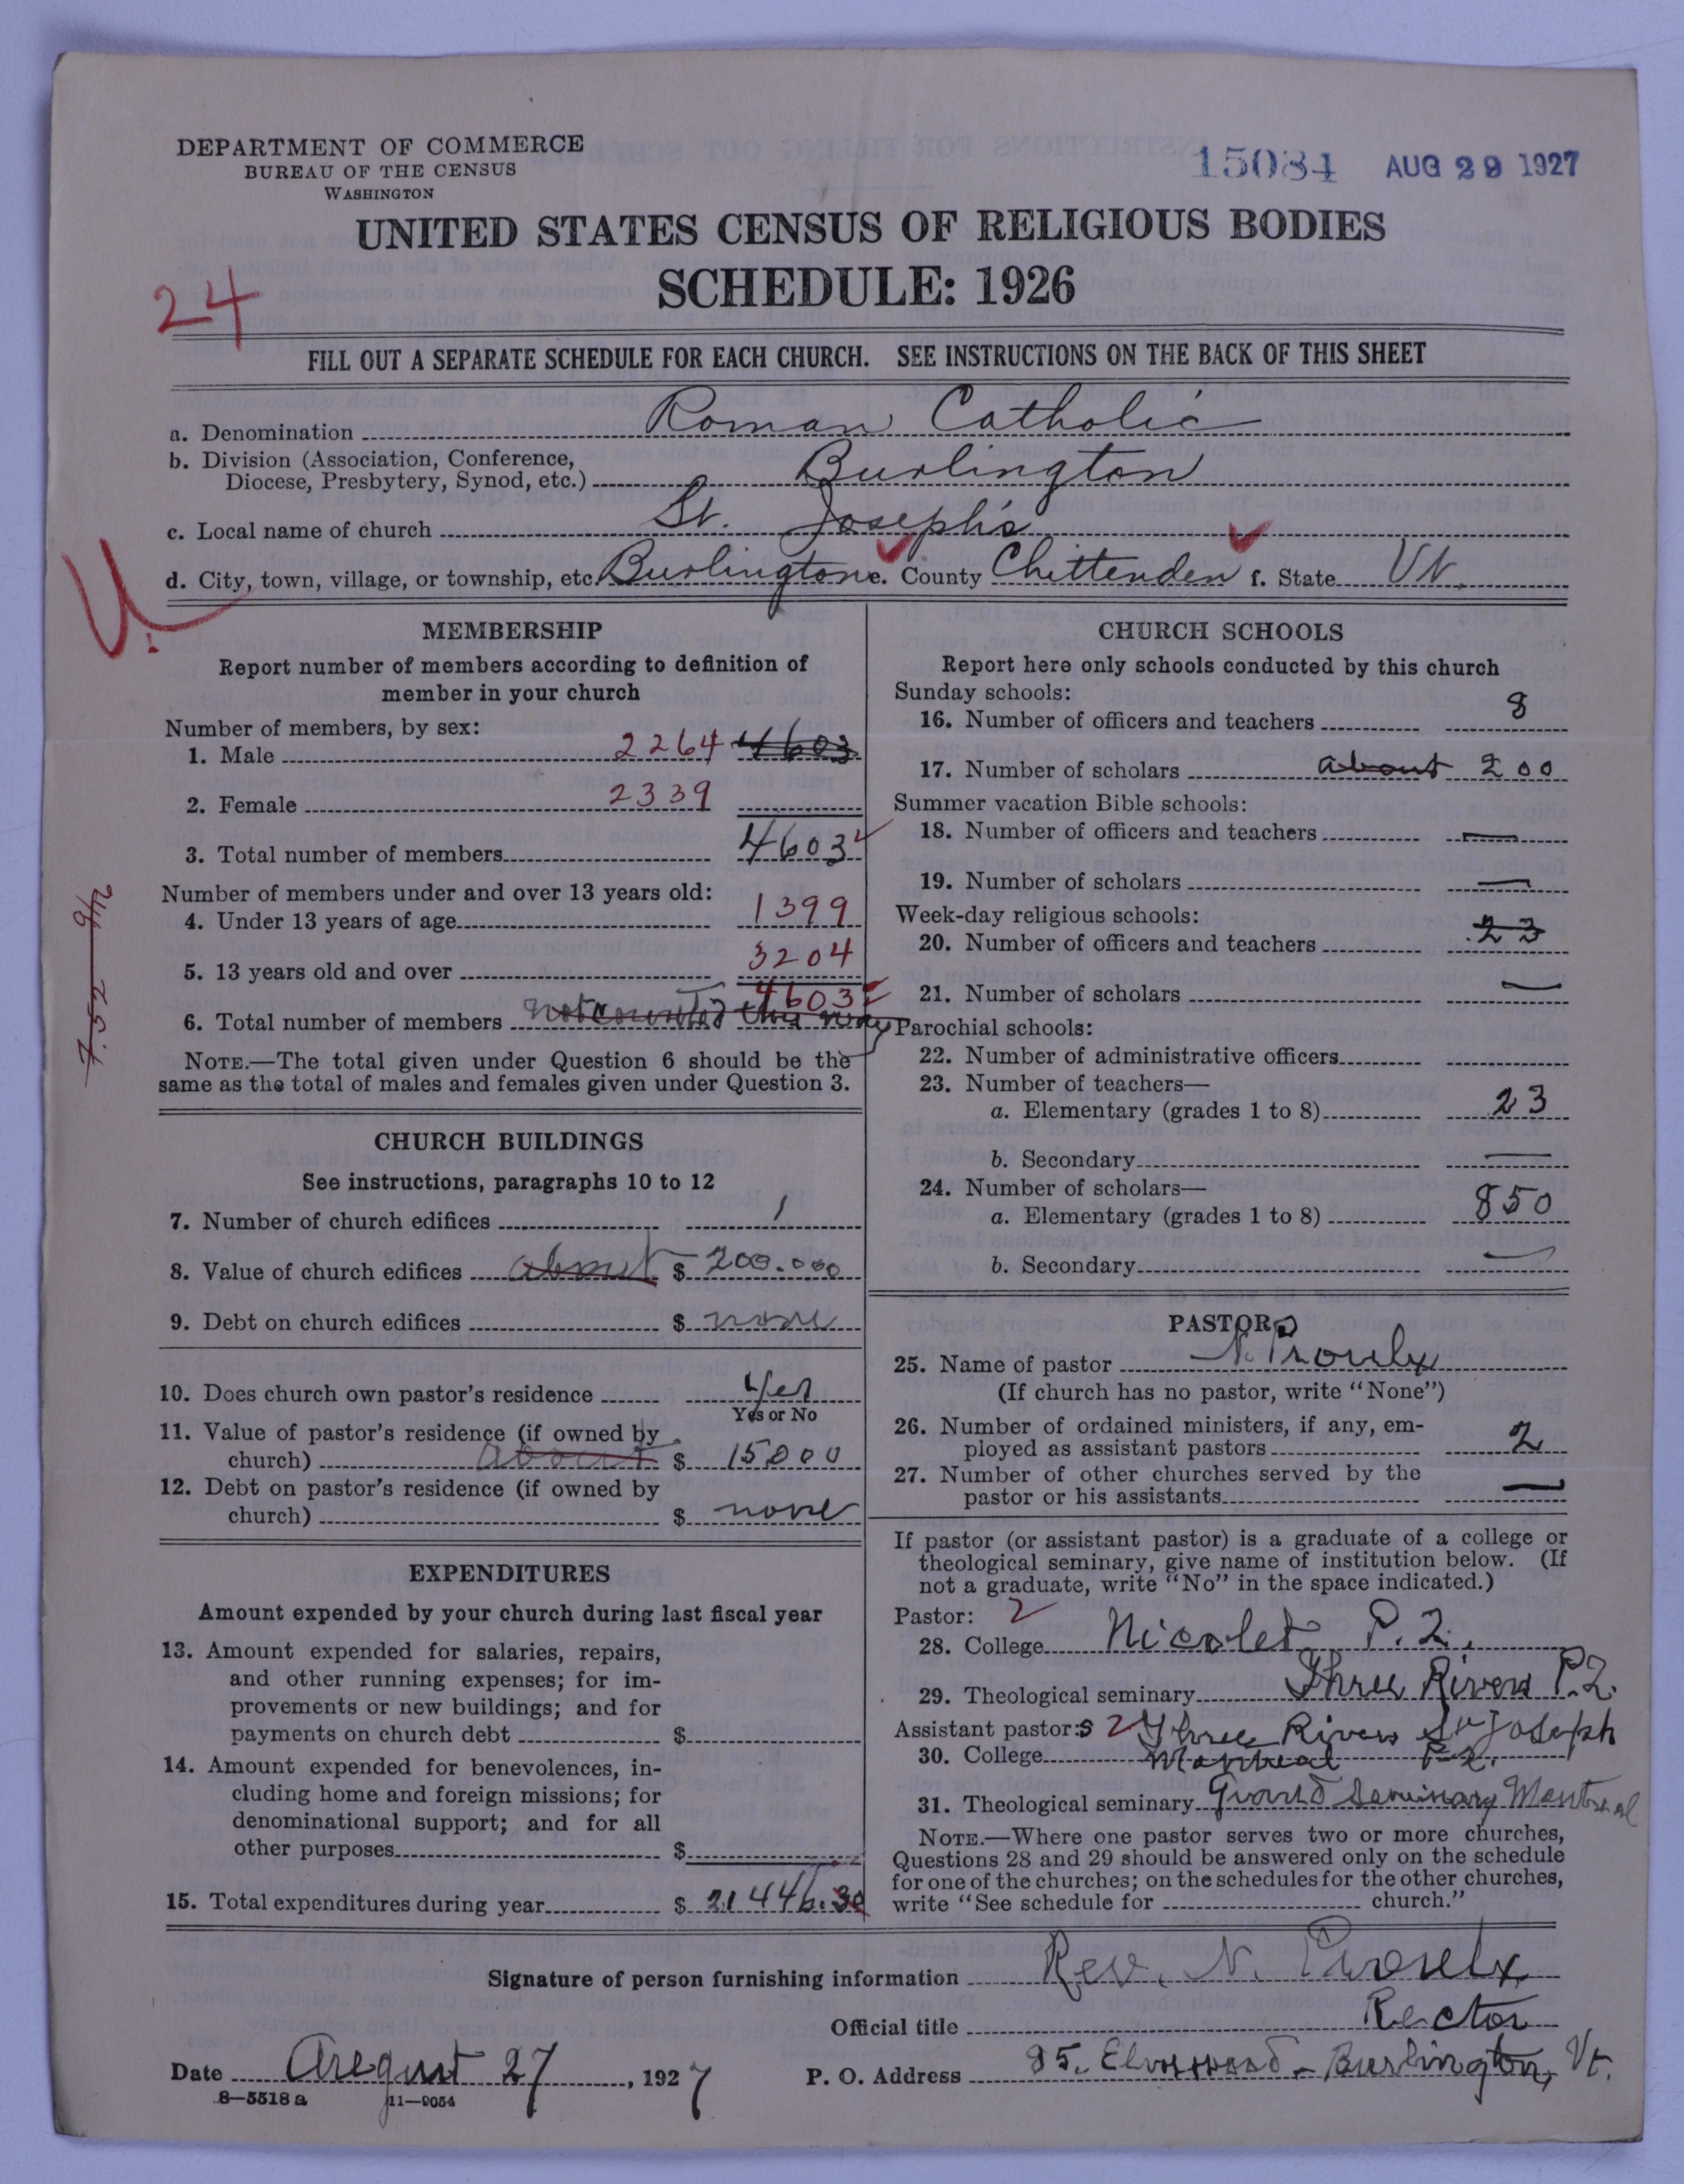 DEPARTMENT OF COMMERCE
BUREAU OF THE CENSUS
WASHINGTON
15084 AUG 29 1927
UNITED STATES CENSUS OF RELIGIOUS BODIES
SCHEDULE: 1926
24
FILL OUT A SEPARATE SCHEDULE FOR EACH CHURCH. SEE INSTRUCTIONS ON THE BACK OF THIS SHEET
a. Denomination Roman Catholic
b. Division (Association, Conference,
Diocese, Presbytery, Synod, etc.) Burlington
c. Local name of church St. Joseph's
d. City, town, village, or township, etc. Burlington e. County Chittenden f. State Vt.
U.
MEMBERSHIP
Report number of members according to definition of
member in your church
Number of members, by sex:
1. Male 2264 4603
2. Female 2339
3. Total number of members 4603
Number of members under and over 13 years old:
4. Under 13 years of age 1399
5. 13 years old and over 3204
4603
6. Total number of members not counted this way
NOTE.—The total given under Question 6 should be the
same as the total of males and females given under Question 3.
7.52 9/12
CHURCH BUILDINGS
See instructions, paragraphs 10 to 12
7. Number of church edifices 1
8. Value of church edifices about $ 200.000
9. Debt on church edifices $ none
10. Does church own pastor's residence Yes
Yes or No
11. Value of pastor's residence (if owned by
church) about $ 15000
12. Debt on pastor's residence (if owned by
church) $ none
EXPENDITURES
Amount expended by your church during last fiscal year
13. Amount expended for salaries, repairs,
and other running expenses; for im-
provements or new buildings; and for
payments on church debt $
14. Amount expended for benevolences, in-
cluding home and foreign missions; for
denominational support; and for all
other purposes $
15. Total expenditures during year $ 21446.30
CHURCH SCHOOLS
Report here only schools conducted by this church
Sunday schools:
16. Number of officers and teachers 8
17. Number of scholars about 200
Summer vacation Bible schools:
18. Number of officers and teachers —
19. Number of scholars —
Week-day religious schools:
20. Number of officers and teachers 23
21. Number of scholars —
Parochial schools:
22. Number of administrative officers
23. Number of teachers—
a. Elementary (grades 1 to 8) 23
b. Secondary —
24. Number of scholars—
a. Elementary (grades 1 to 8) 850
b. Secondary —
PASTOR
25. Name of pastor N. Proulx
(If church has no pastor, write "None")
26. Number of ordained ministers, if any, em-
ployed as assistant pastors 2
27. Number of other churches served by the
pastor or his assistants —
If pastor (or assistant pastor) is a graduate of a college or
theological seminary, give name of institution below. (If
not a graduate, write "No" in the space indicated.)
Pastor: 2
28. College Nicolet P.Q.
29. Theological seminary Three Rivers P.Q.
Assistant pastor:s 2 Three Rivers St Joseph
30. College Montreal P.Q.
31. Theological seminary Grand Seminary Montreal
NOTE.—Where one pastor serves two or more churches,
Questions 28 and 29 should be answered only on the schedule
for one of the churches; on the schedules for the other churches,
write "See schedule for church."
Signature of person furnishing information Rev. N. Proulx
Official title Rector
Date August 27, 1927 P. O. Address 85. Elmwood - Burlington, Vt.
8—5518 a 11—9054